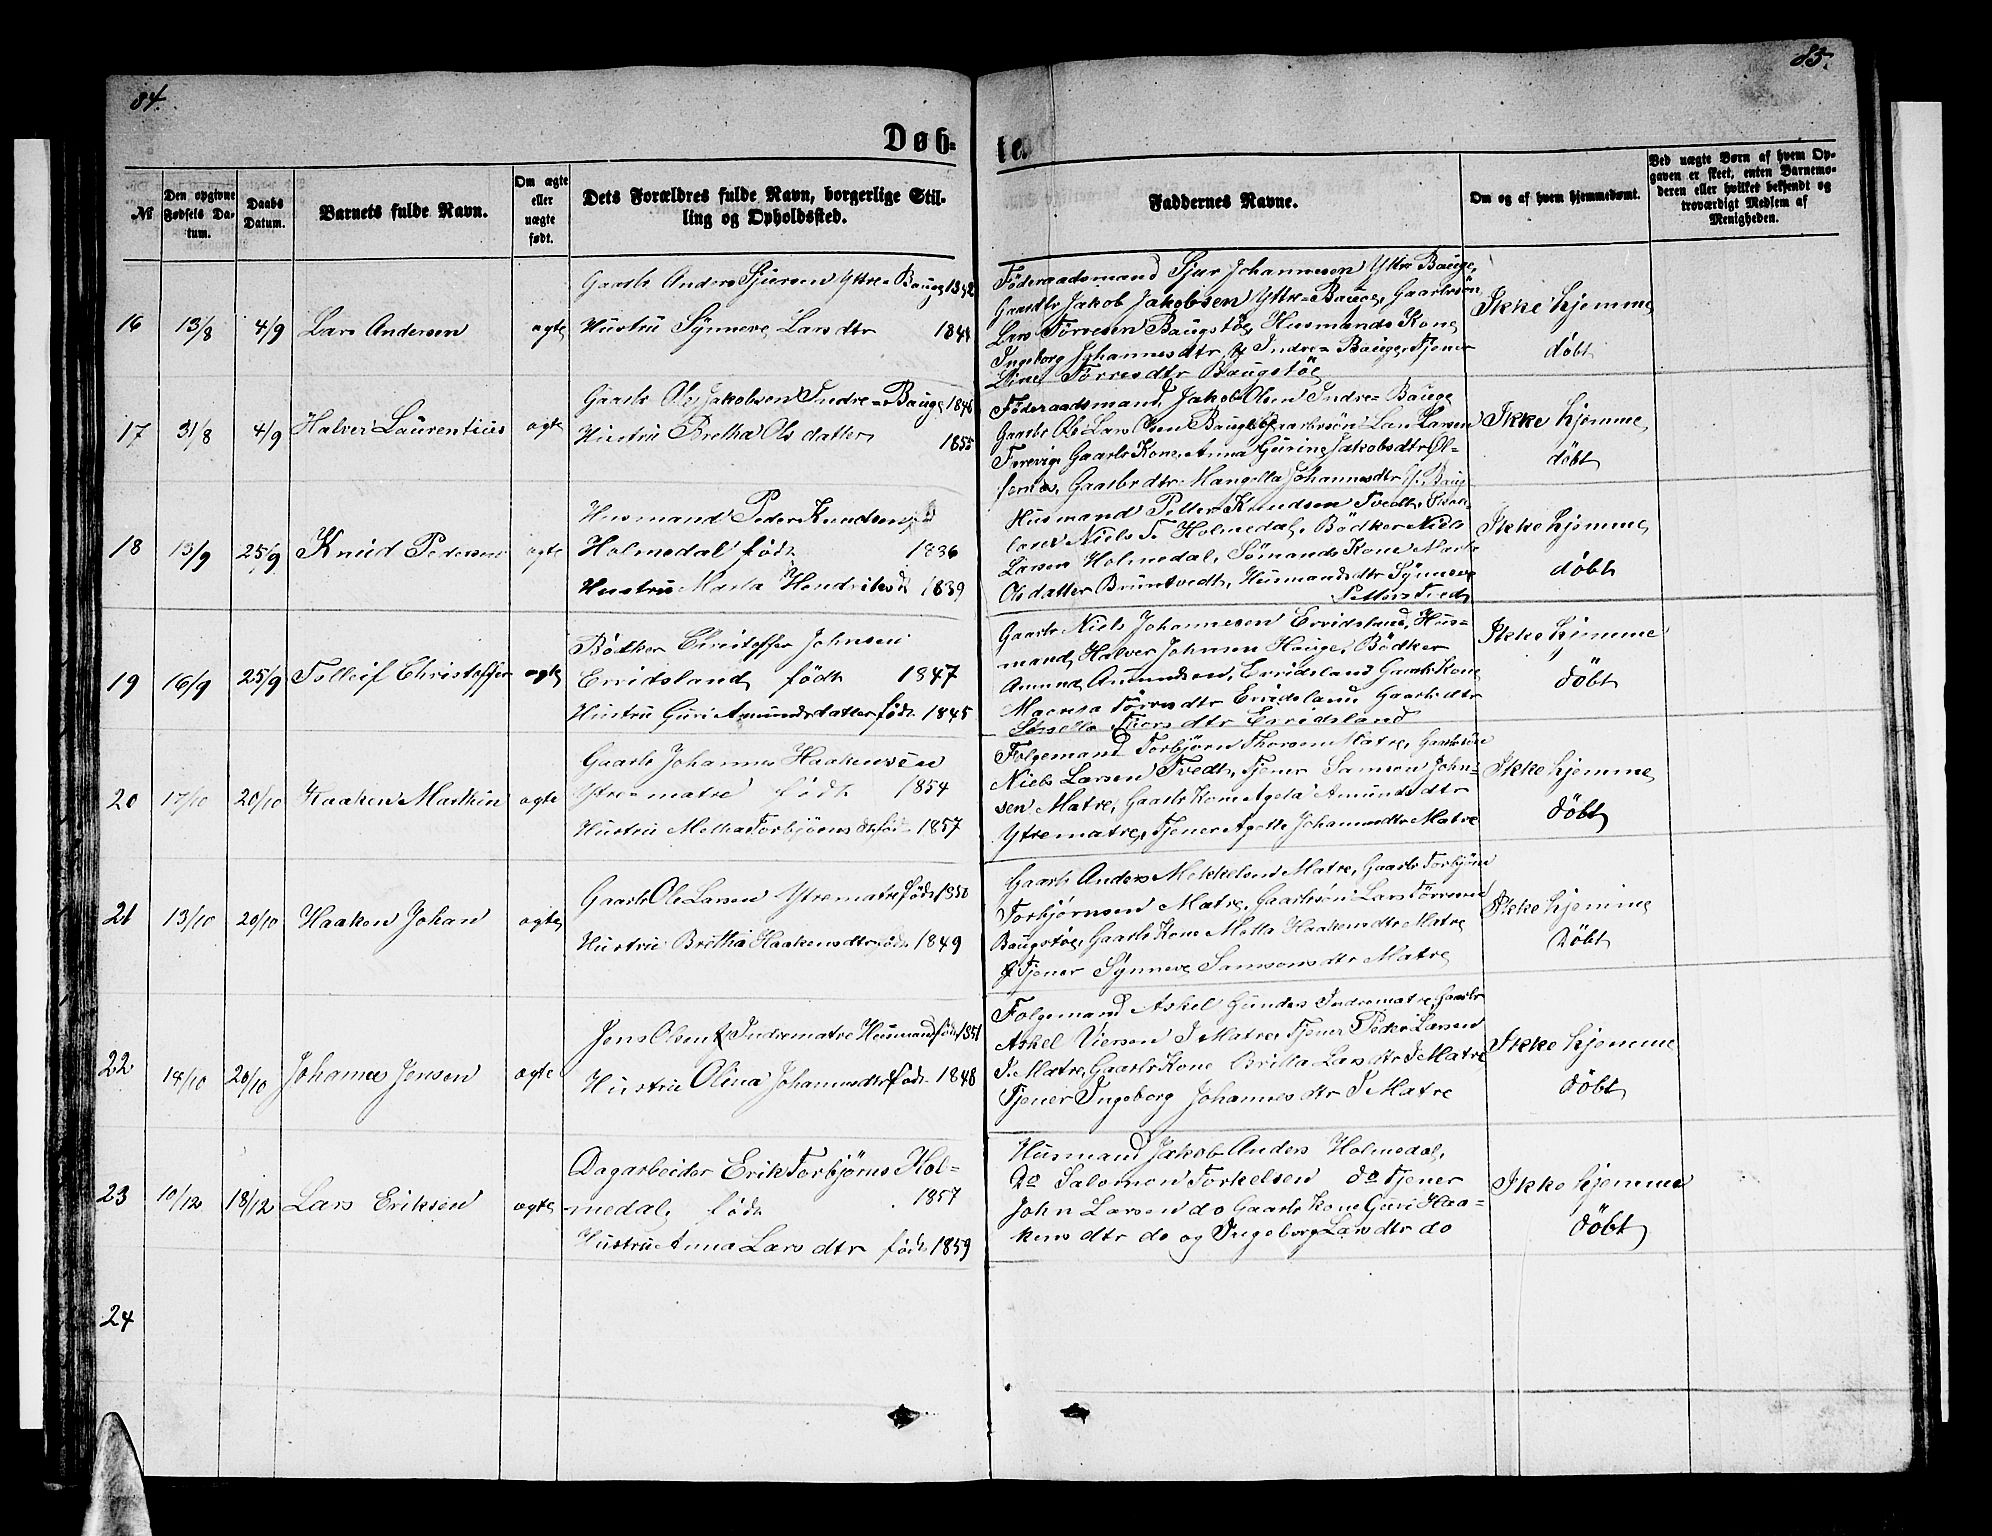 84.
85.
Døb-
te.
№
Den opgivne Fødsels Datum.
Daabs Datum.
Barnets fulde Navn.
Om ægte eller uægte født.
Dets Forældres fulde Navn, borgerlige Stilling og Opholdssted.
Faddernes Navne.
Om og af hvem hjemmedøbt.
Ved uægte Børn af hvem Opgaven er skeet, enten Barnemoderen eller hvilket bekjendt og troværdigt Medlem af Menigheden.
16 13/8 4/9 Lars Andersen ægte
Gaarbr Anders Sjursen Yttre-Bauge
Hustru Synneve Larsdtr
Föderaadsmand Sjur Johannesen Yttre Bauge,
Gaardbr Jakob Jakobsen Yttre-Bauge, Gaardbrsön
Lars Törresen Baugstöe, Husmands Kone
Ingeborg Johannesdtr Indre-Bauge, Tjener
Törresdtr Baugstöe
Ikke hjemme
döbt
17 31/8 4/9 Halver Laurentius ægte
Gaarbr Ole Jakobsen Indre-Bauge 1846
Hustru Bretha Olsdatter 1855
Föderaadsmand Jakob Olsen Indre-Bauge
Gaarbr Ole Larsen Bauge, Gaarbrsön Lars Larsen
Gaarbr Kone Anna Guring Jakobsdtr Öl-
fernes, Gaarbr dtr Mangella Johannesdtr
Ikke hjemme
döbt
18 13/9 25/9 Knud Pedersen ægte
Husmand Peder Knudsen
Holmedal födt 1836
Hustru Marta Hendriksd 1839
Husmand Petter Knudsen Tvedt,
Niels T. Holmedal, Bödker Niels
Larsen Holmedal, Sömands Kone Marta
Olsdatter Bruntvedt, Husmandsdtr Synneve
Petters Tvedt
Ikke hjemme
döbt
19 16/9 25/9 Tolleif Christoffer ægte
Bödker Christoffer Johnsen
Ervidsland födt 1847
Hustru Guri Amundsdatter födt 1845
Gaarbr Niels Johannesen Ervidsland, Hus-
mand Halver Johnsen Hauge, Bödker
Amund Amundsen, Ervidsland Gaarbr Kone
Törresdtr Ervidsland Gaarbr dtr
Ervidsland
Ikke hjemme
döbt
20 17/10 20/10 Haaken Mathin ægte
Gaarbr Johannes Haakensen
Ytrematre födt 1854
Hustru Metha Torbjörnsdtr föd 1857
Folgemand Torbjörn Thorsen Matre, Gaarbrsön
Niels Larsen Tvedt, Tjener Samson John-
sen Matre, Gaarbr Kone Ageta Amundsdtr
Ytrematre, Tjener Agethe Johannesdtr Matre
Ikke hjemme
döbt
21 13/10 20/10 Haaken Johan ægte
Gaarbr Ole Larsen Ytrematre födt 1850
Hustru Bretha Haakensdtr födt 1849
Gaarbr Anders Mekkelsen Matre, Gaarbr Torbjörn
Torbjörnsen Matre, Gaarbrsön Lars Törresen
Baugstöe, Gaarbr Kone Metta Haakensdtr Matre
& Tjener Synneve Samsonsdtr Matre
Ikke hjemme
Döbt
22 14/10 20/10 Johannes Jensen ægte
Jens Olsen Indrematre Husmand födt 1851
Hustru Olina Johannesdtr födt 1848
Folgemand Askel Gunders Indrematre, Gaarbr
Askel Viersen I Matre, Tjener Peder Larsen
I. Matre, Gaarbr Kone Britta Larsdtr I Matre
Tjener Ingeborg Johannesdtr I Matre
Ikke hjemme
döbt
23 10/12 18/12 Lars Eriksen ægte
Dagarbeider Erik Torbjörns Hol-
medal, födt 1857
Hustru Anna Larsdtr födt 1859
Husmand Jakob Anders Holmedal,
do Salomon Torkelsen do Tjener
John Larsen do Gaarbr Kone Guri Haa-
kensdtr do og Ingeborg Larsdtr do
Ikke hjemme
döbt
24